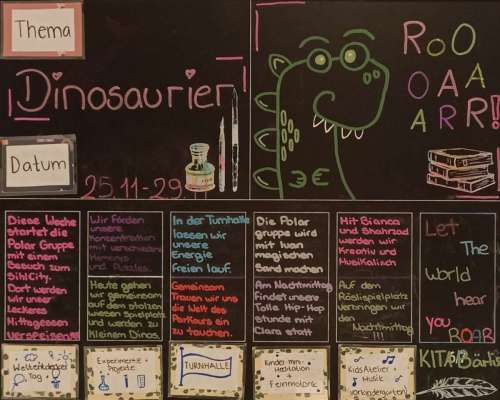 Thema
Dinosaurier
Datum
25.11-29.11
RoO
OAA
ARR!
Diese Woche
startet die
Polar Gruppe
mit einem
Besuch zum
SihlCity.
Dort werden
wir unser
Leckeres
Mittagessen
verspeisen!!!
Wir fördern
unsere
Konzentration
mit verschiedenen
Memorys
und Puzzles.
Heute gehen
wir gemeinsam
auf den stolzen
wiesen Spielplatz
und werden zu
kleinem Dinos.
In der Turnhalle
lassen wir
unsere
Energie
freien lauf.
Gemeinsam
Trauen wir uns
die Welt des
Parkours ein
zu tauchen.
Die Polar
gruppe wird
mit luan
magischen
Sand machen
Am Nachmittag
findet unsere
Tolle Hip-Hop
stunde mit
Clara statt
Mit Bianca
und Shahrzad
werden wir
Kreativ und
Musikalisch
Auf dem
Röslispielplatz
Verbringen wir
den
Nachmittag
!!!
Let
The
world
hear
you
ROAR
Weltentdecker
Tag
Experimente +
Projekte
TURNHALLE
Kinder mini
Meditation
+
Feinmotorik
Kids Atelier +
Musik
Vorkindergarten
KITA